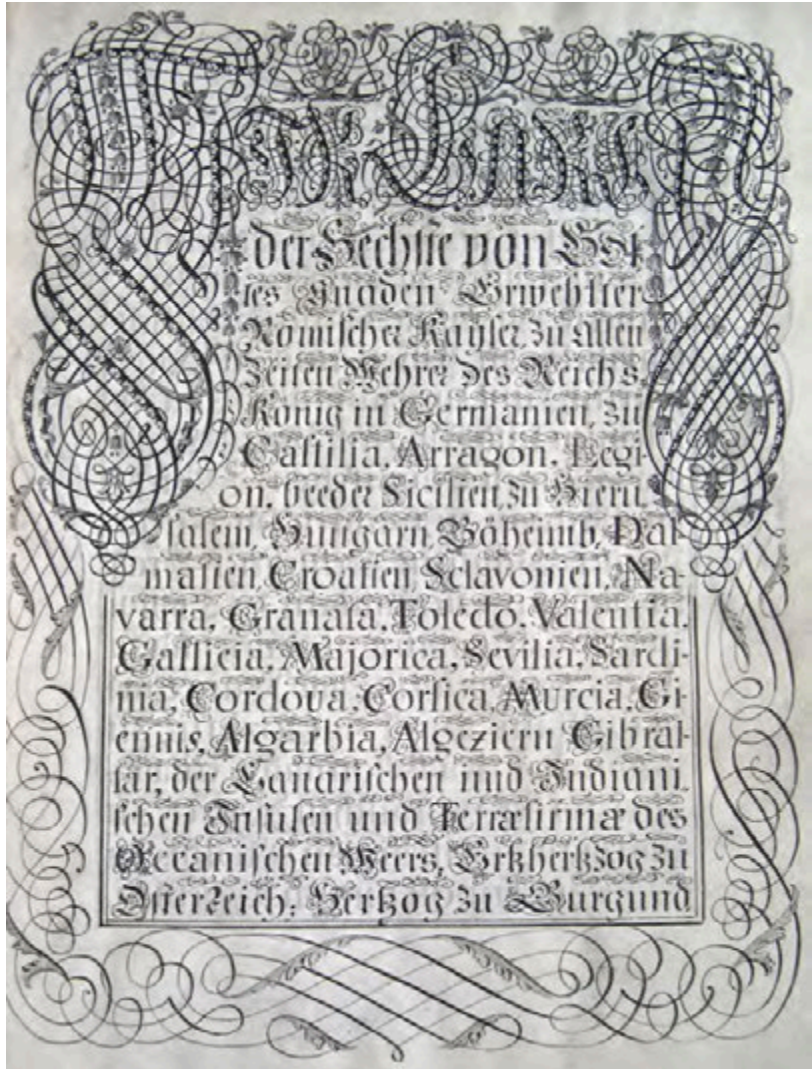 Wir Carl
der Sechste von Got
tes Gnaden Erwehlter
Römischer Kayser, zu Allen
Zeiten Mehrer des Reichs,
König in Germanien, zu
Castilia, Arragon, Legi-
on, beeder Sicilien, zu Hieru-
salem, Hungarn, Böheimb, Dal-
matien, Croatien, Sclavonien, Na-
varra, Granata, Toledo, Valentia,
Gallicia, Majorica, Sevilia, Sardi-
nia, Cordova, Corsica, Murcia, Gi-
ennis, Algarbia, Algeziern Gibral-
tar, der Canarischen und Indiani-
schen Insulen und Terræfirmæ des
Oceanischen Meers, Ertzhertzog zu
Österreich, Hertzog zu Burgund